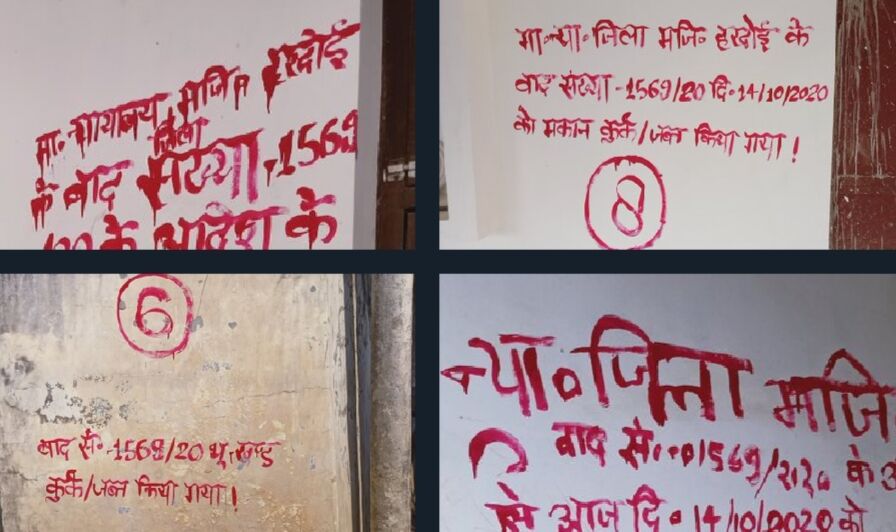 मा. न्यायालय मजि० हरदोई
जिला
के वाद संख्या -1569
/20 के आदेश के
मा० न्या० जिला मजि० हरदोई के
वाद संख्या -1569/20 दि० 14/10/2020
को मकान कुर्क/जब्त किया गया!
8
6
वाद सं० -1569/20 भू-खण्ड
कुर्क/जब्त किया गया!
न्या० जिला मजि
वाद सं० 1569/2020 के
से आज दि० 14/10/2020 को